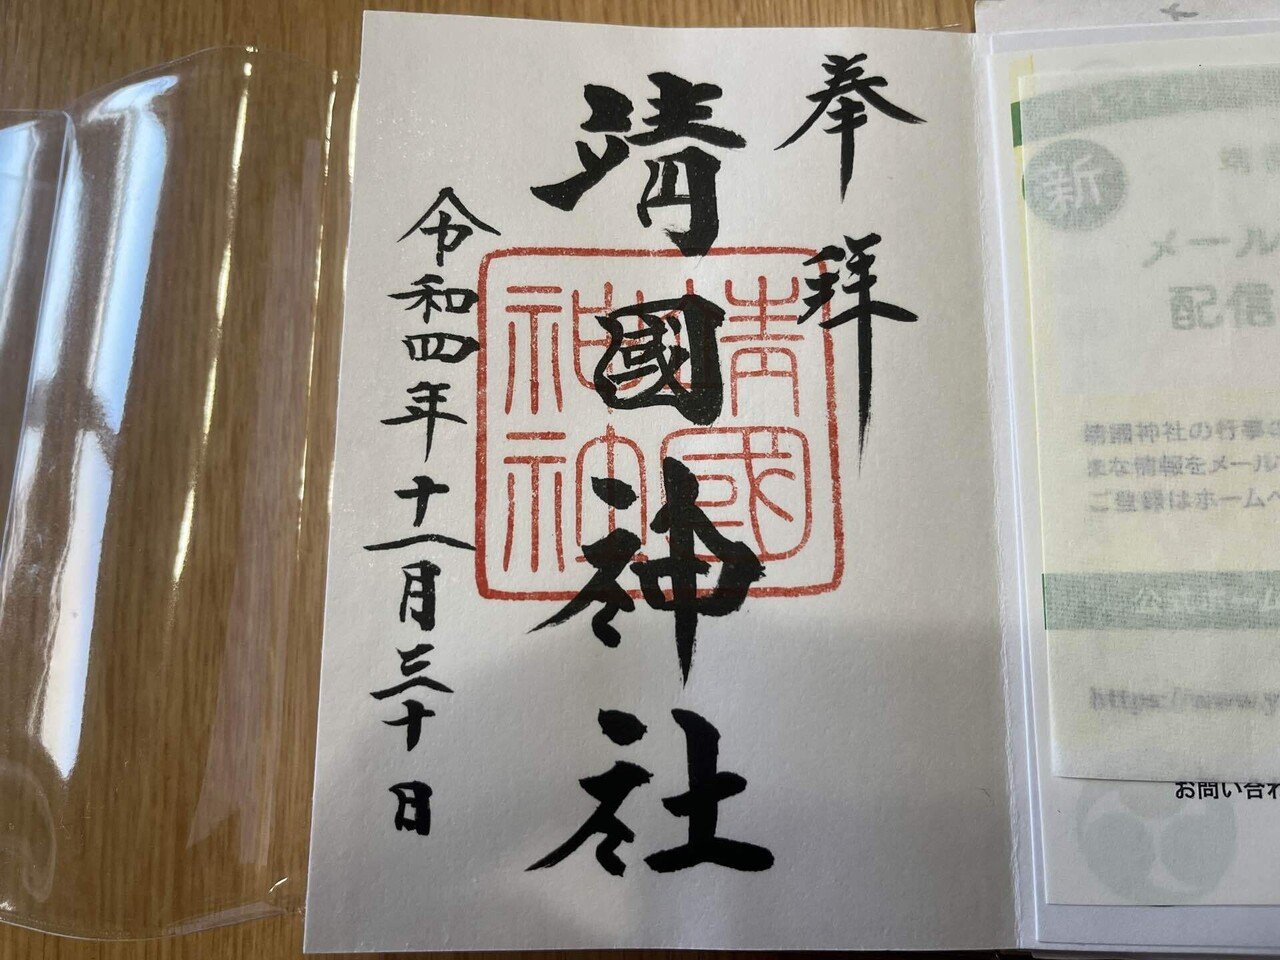 奉拝
靖國神社
令和四年十一月三十日
靖國
神社
新
メール
配信
靖國神社の行事
まな情報をメール
ご登録はホームペ
公式ホーム
https://www.y
お問い合わ